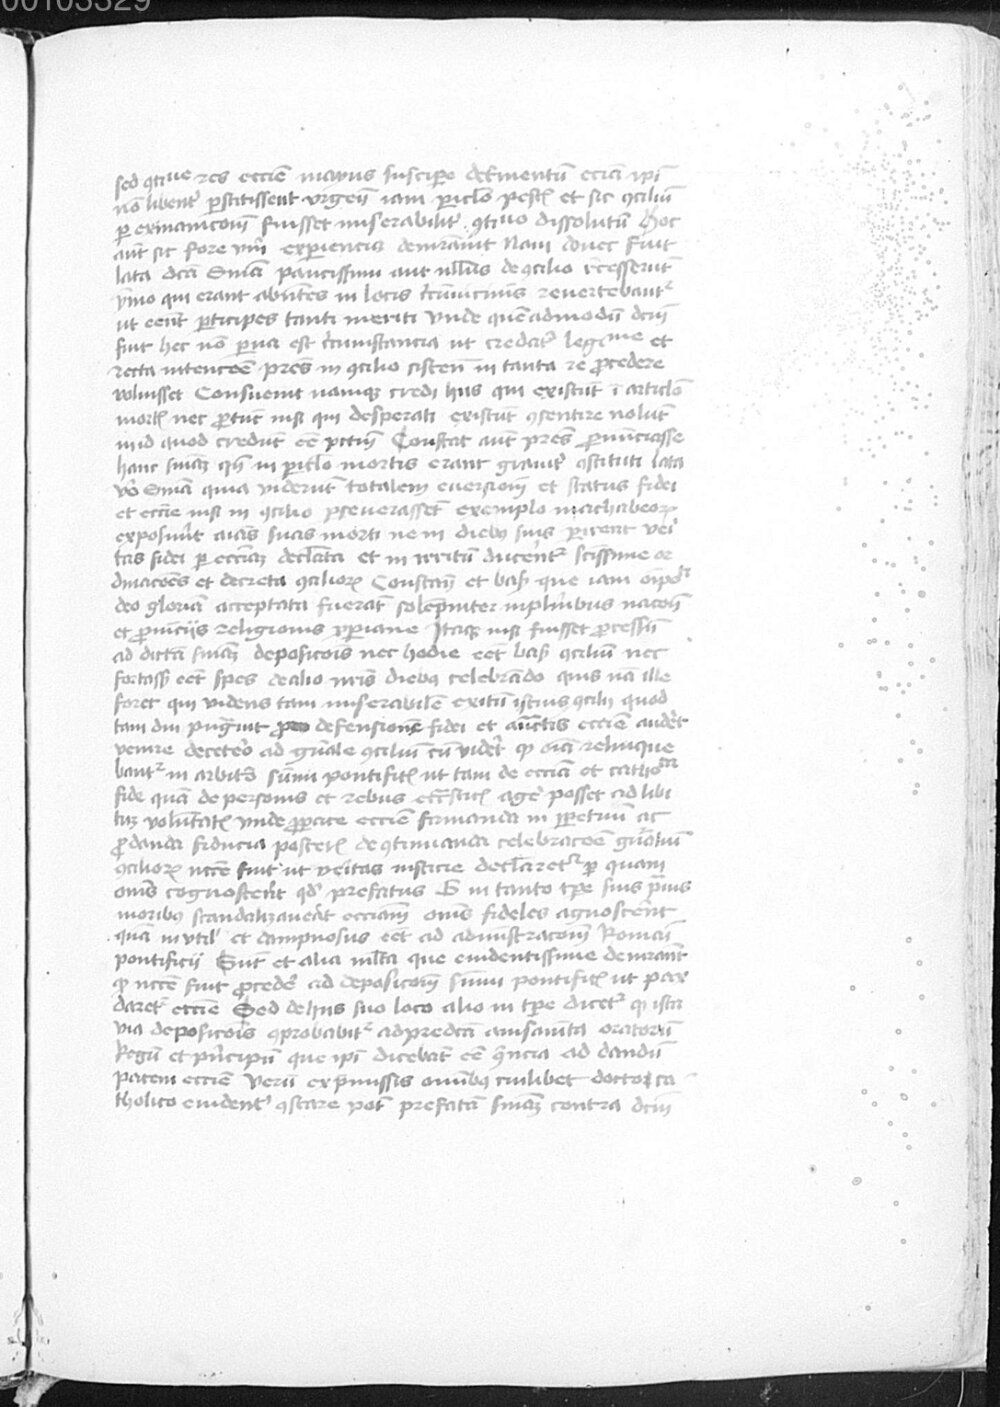 00103329
sed 9tiue res eccie maius suscipe detrimentū etiā ipi
nō libent' pstitissent urgen iam piclo pest et sic 9ciliū
p exinanicom fuisset miserabilit' 9tiuo dissolutū Hoc
aut sic fore vm experiencia demrauit Nam donec fuit
lata dca snia paucissimi aut nullus de 9cilio recesserūt
ymo qui erant abntes in locis circuuicinis revertebantr
ut eent pticipes tanti meriti Unde quēadmodū dcm
fuit hec nō parua est circumstancia ut credat' legitime et
recta intencoe pres in 9cilio sisten in tanta re pcedere
voluisset Consueuit namqz credi hiis qui existūt ī articlo
mort nec ptūt nisi qui desperati existūt 9sentire nolūt
in id quod credūt ee pctm Constat aut pres pnuncasse
hanc sniaz qn in piclo mortis erant grauit' 9stituti lata
vo snia quia viderut totalem euersiom et status fidei
et eccie nisi in 9cilio pseuerasset exemplo machabeorz
exposuit aias suas morti ne in diebz suis pireat veri
tas fidei p ecciaz declata et in irritū ducent' scissime or
dinacoes et decreta 9ciliorz Constan et bas que iam oipo
deo gloria acceptata fuerāt solepniter in plribus nacoib
et puinciis religionis xpiane Itaqz nisi fuisset pcessū
ad dictā sniaz deposicois nec hodie eet bas 9ciliū nec
fortass eet spes de alio nris diebz celebrādo quis nā ille
foret qui videns tam miserabilē exitū istius 9cilii quod
tam diu pugnuit pro defensione fidei et auctis eccie auderet
venire decetero ad gnale 9ciliū cū videt' qz oia relinque
bantr in arbit sūmi pontific ut tam de eccia et catho
fide quā de personis et rebus eccsticis age' posset ad libi
tuz voluntat Unde p pace eccie firmanda in ppetuū ac
p danda fiducia poster de 9tinuanda celebracoe gnaliū
9ciliorz necce fuit ut veritas iusticie declaretr p quam
omis cognoscent qd prefatus G in tanto tpe suis pnis
moribz scandalizauerit ecciam omis fideles agnoscent
quā inutil' et dampnosus eet ad administracom Romai
pontificii Sut et alia mlta que euidentissime demrant
qz necce fuit pcede' ad deposicom sūmi pontific ut pax
daret' eccie Sed de hiis suo loco alio in tpe dicet' qz ista
via deposicois 9probabitr ad predca auisamta oratorū
Regū et principū que ipi dicebat ee 9ncia ad dandū
pacem eccie Verū ex pmissis omibz cuilibet doctori ca
tholico euident' 9stare pot prefatā sniaz contra dcm